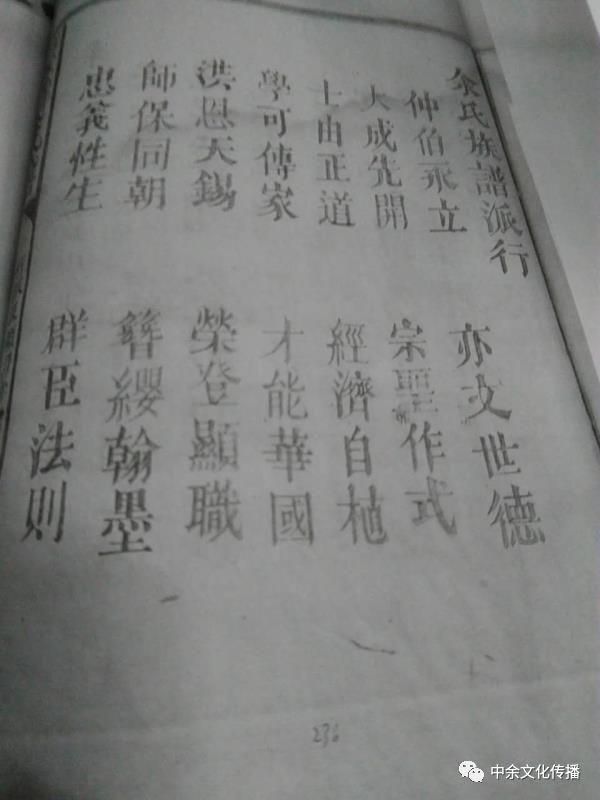 余氏族譜派行
仲伯承立
亦文世德
大成先開
宗聖作式
士由正道
經濟自植
學可傳家
才能華國
洪恩天錫
榮登顯職
師保同朝
簪纓翰墨
忠義性生
群臣法則
236
中余文化传播